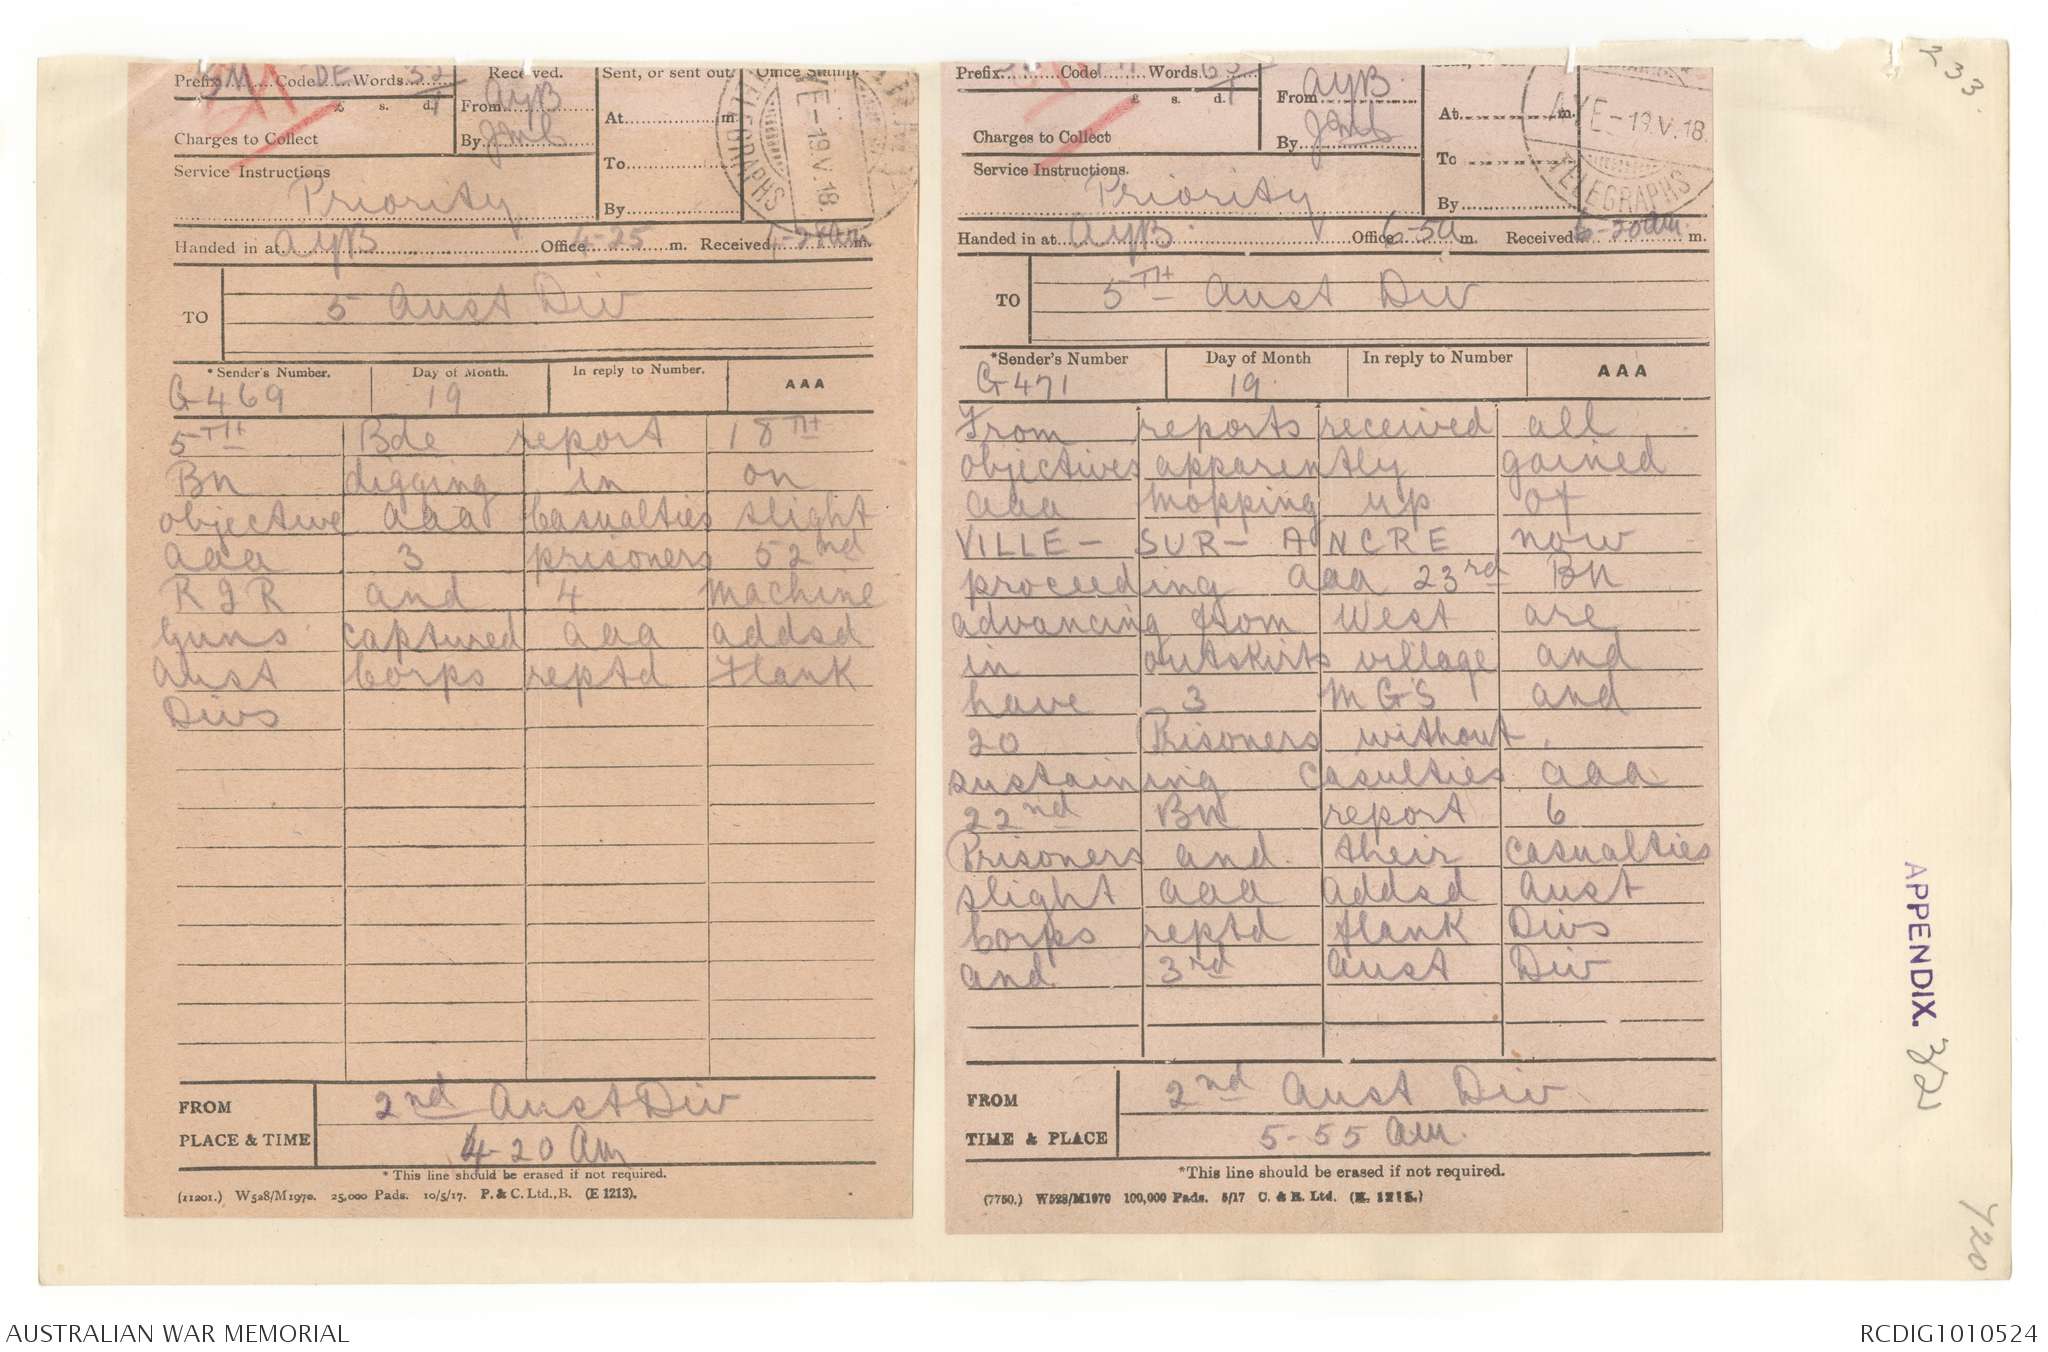 233.
Prefix SM Code DE Words 32
£ s. d. 1
Charges to Collect
Received.
From AYB
By JMB
Sent, or sent out
At m
To
By
Office Stamp.
TELEGRAPHS
AYE - 19.V.18.
Service Instructions
Priority
Handed in at AYB Office 4-25 m. Received m.
TO 5 Aust Div
*Sender's Number. Day of Month. In reply to Number. AAA
G469 19
5TH Bde report 18TH
Bn digging in on
objective aaa Casualties slight
aaa 3 prisoners 52nd
R I R and 4 machine
Guns captured aaa addsd
Aust Corps reptd Flank
Divs
FROM 2nd Aust Div
PLACE & TIME 4-20 Am
*This line should be erased if not required.
(11201.) W528/M1970. 25,000 Pads. 10/5/17. P. & C. Ltd., B. (E 1213).
Prefix Code Words 63
£ s. d. 1
Charges to Collect
From AYB
By JMB
At m.
To
By
AYE - 19.V.18.
TELEGRAPHS
Service Instructions.
Priority
Handed in at AYB Office 6-5a m. Received 6-20am. m.
TO 5TH Aust Div
*Sender's Number Day of Month In reply to Number AAA
G471 19.
From reports received all
objectives apparently gained
aaa Mopping up of
VILLE - SUR - ANCRE now
proceeding aaa 23rd Bn
advancing from West are
in outskirts village and
have 3 MGS and
20 Prisoners without
sustaining Casulties aaa
22nd Bn report 6
Prisoners and their casualties
slight aaa addsd Aust
Corps reptd flank Divs
and 3rd Aust Div
FROM 2nd Aust Div
TIME & PLACE 5-55 am.
*This line should be erased if not required.
(7750.) W528/M1970 100,000 Pads. 5/17 C. & R. Ltd. (E. 1213.)
APPENDIX. 3/2
420
AUSTRALIAN WAR MEMORIAL
RCDIG1010524